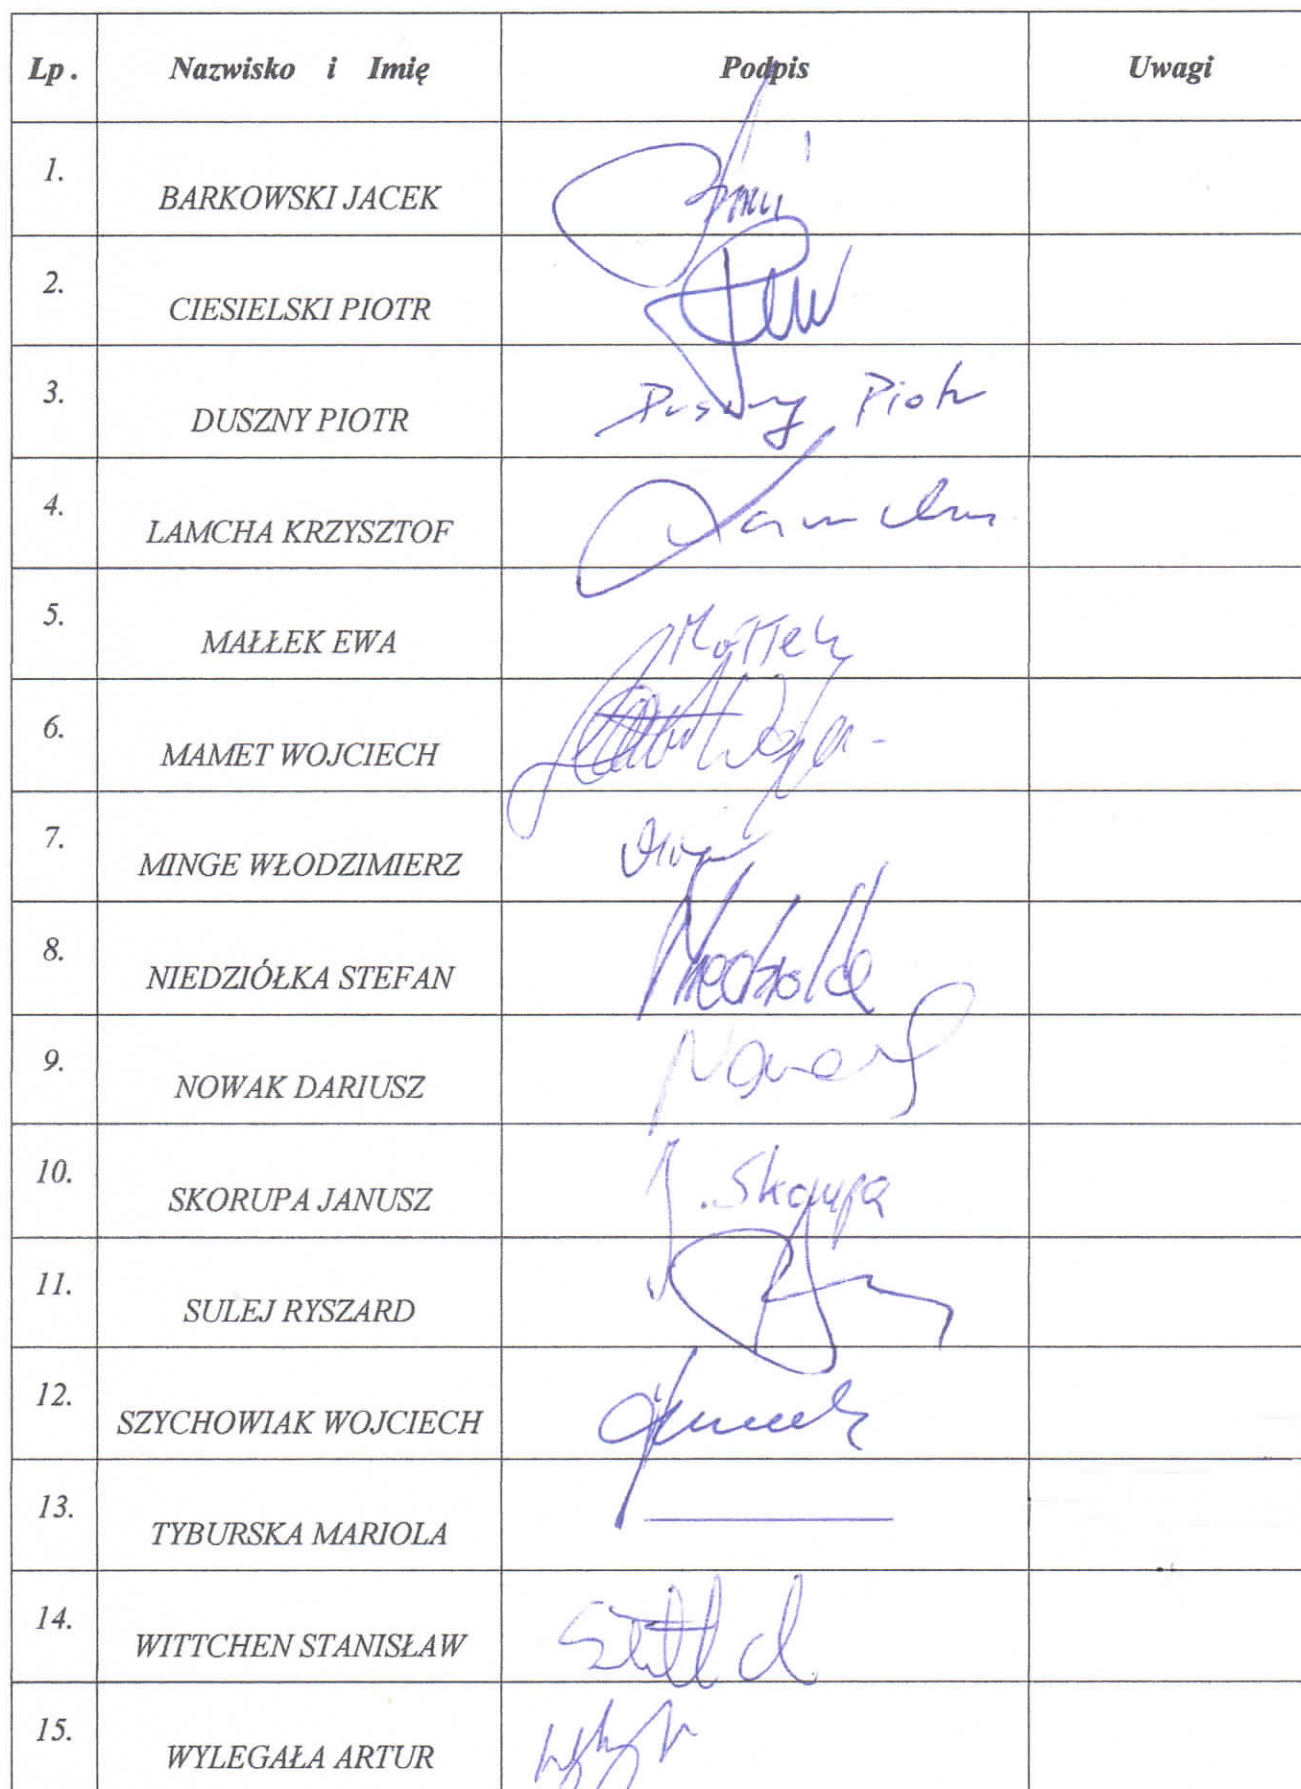 Lp. Nazwisko i Imię Podpis Uwagi
1. BARKOWSKI JACEK
2. CIESIELSKI PIOTR
3. DUSZNY PIOTR Duszny Piotr
4. LAMCHA KRZYSZTOF Lamcha
5. MAŁŁEK EWA Małłek
6. MAMET WOJCIECH
7. MINGE WŁODZIMIERZ
8. NIEDZIÓŁKA STEFAN Niedziółka
9. NOWAK DARIUSZ Nowak
10. SKORUPA JANUSZ J. Skorupa
11. SULEJ RYSZARD
12. SZYCHOWIAK WOJCIECH
13. TYBURSKA MARIOLA
14. WITTCHEN STANISŁAW
15. WYLEGAŁA ARTUR